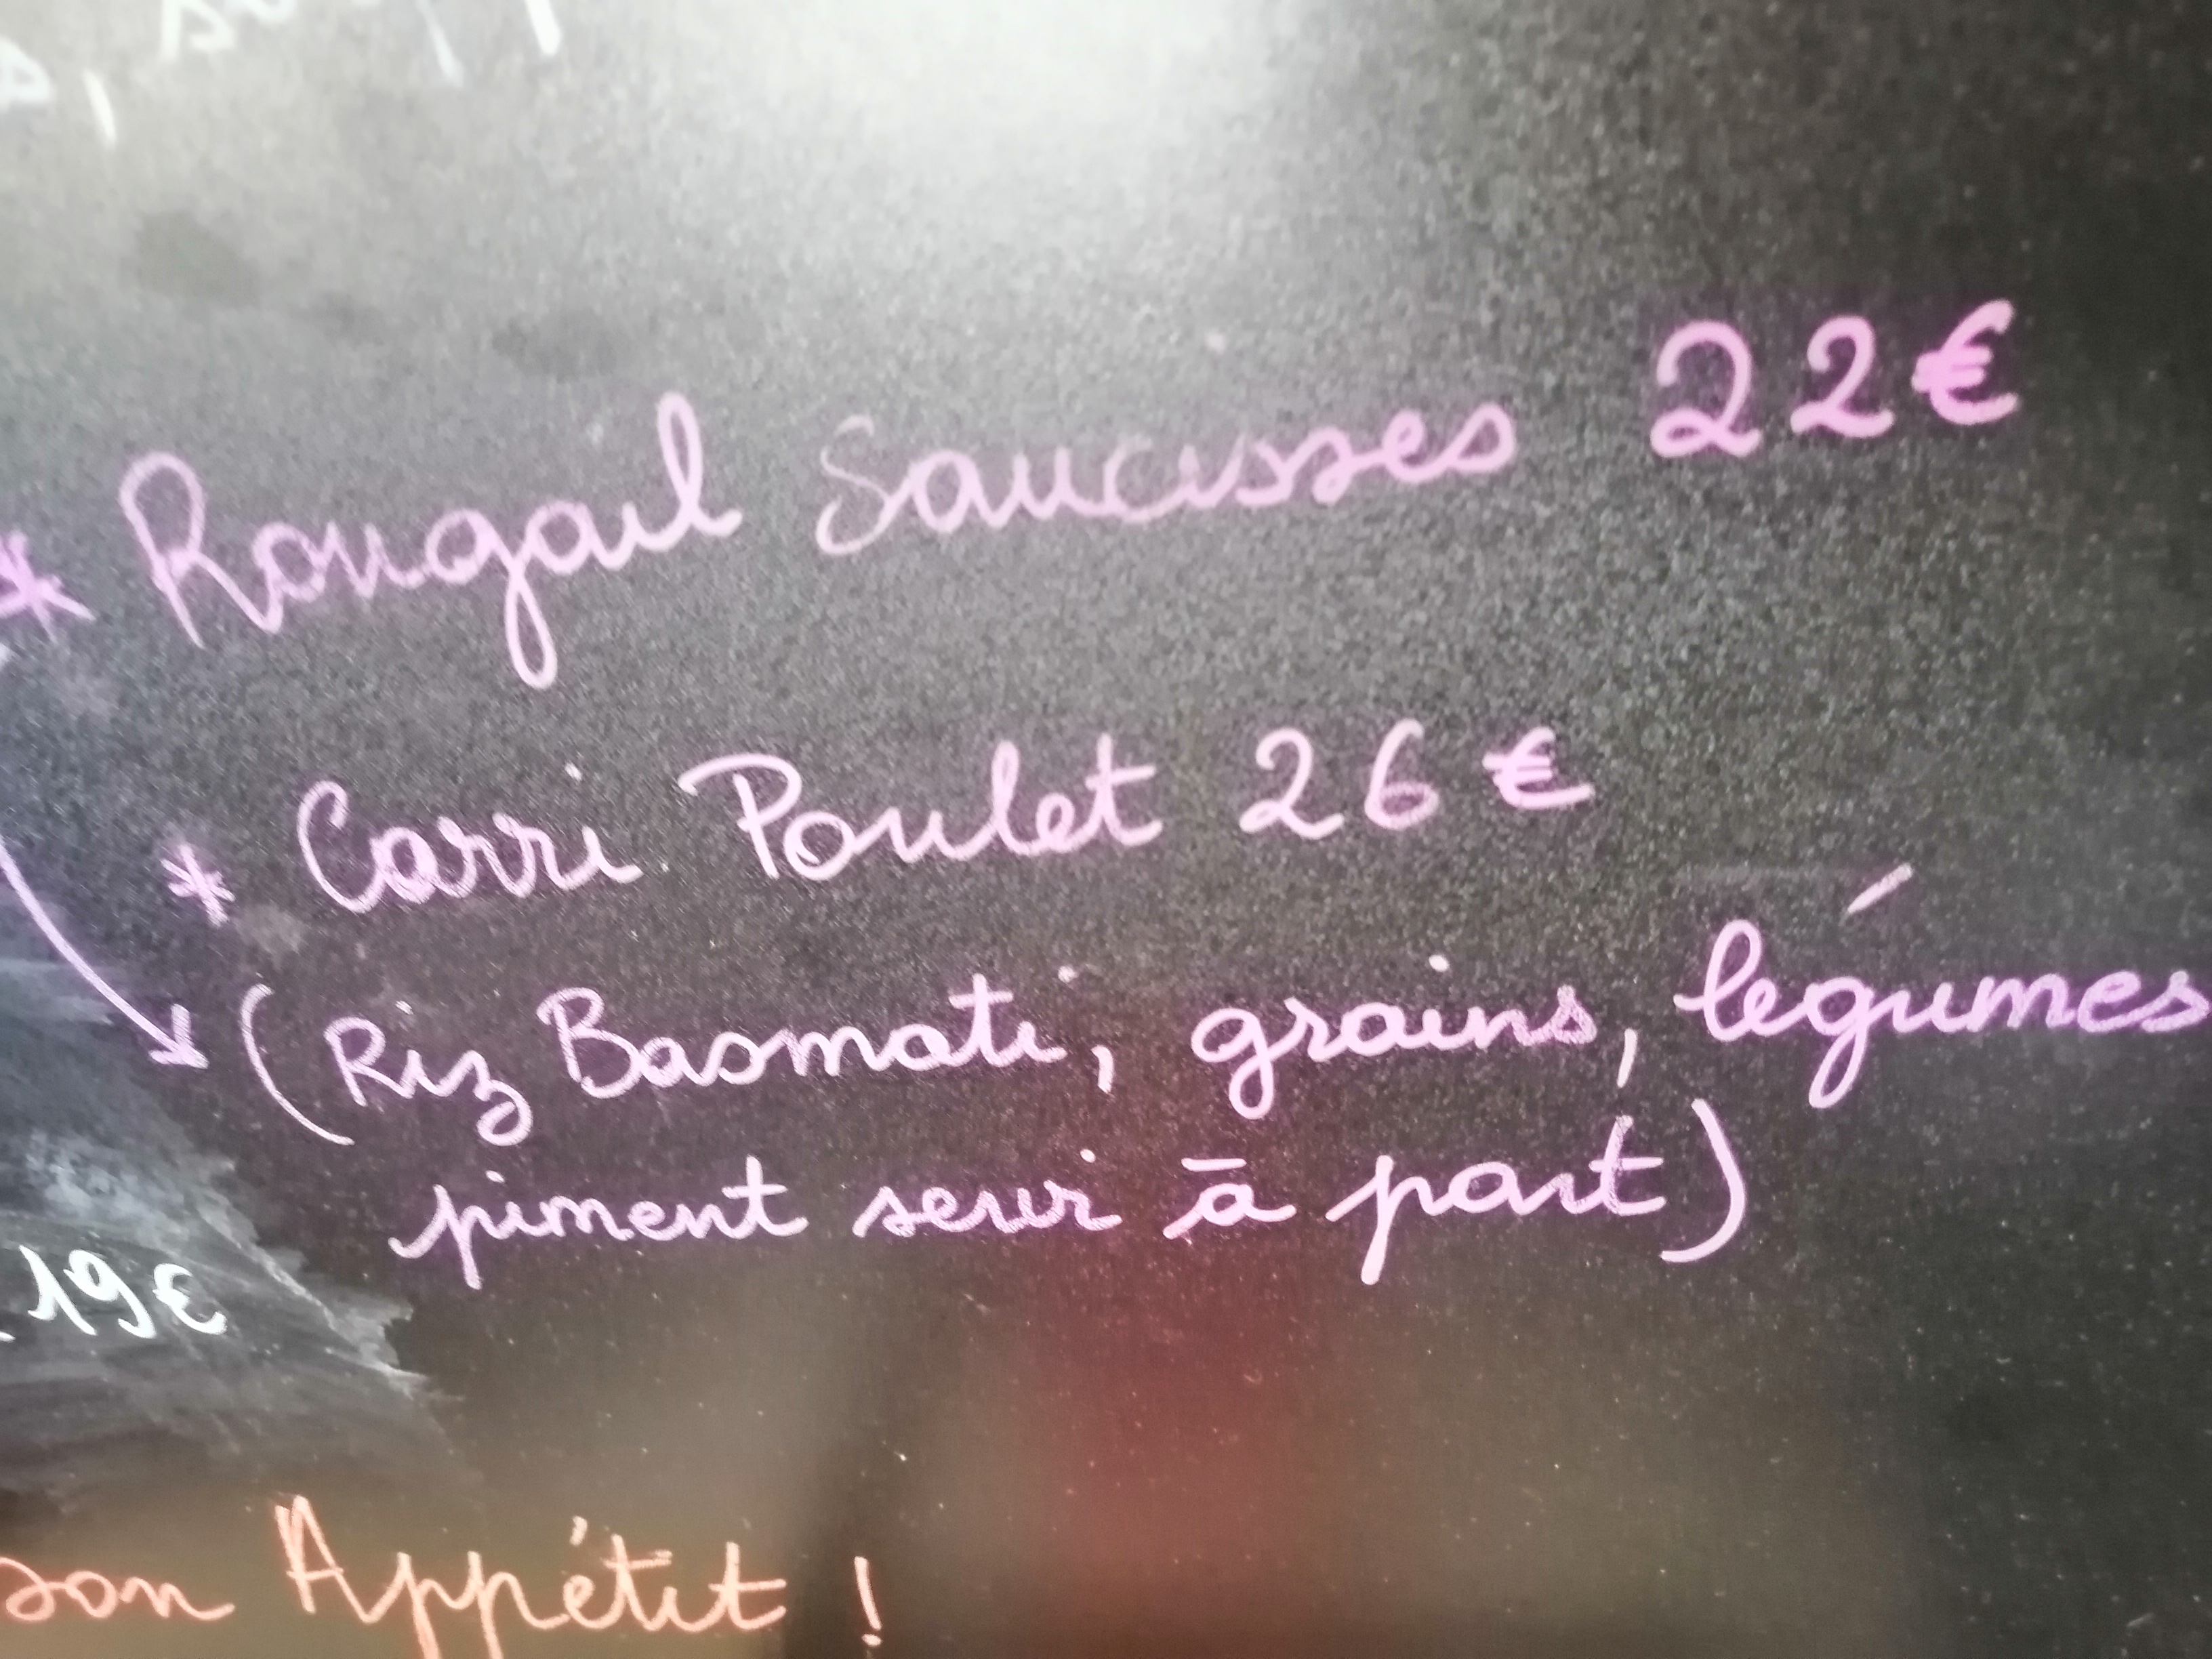 * Rougail Saucisses 22€
* Carri Poulet 26€
(Riz Basmati, grains, légumes
piment servir à part)
19€
Bon Appétit !